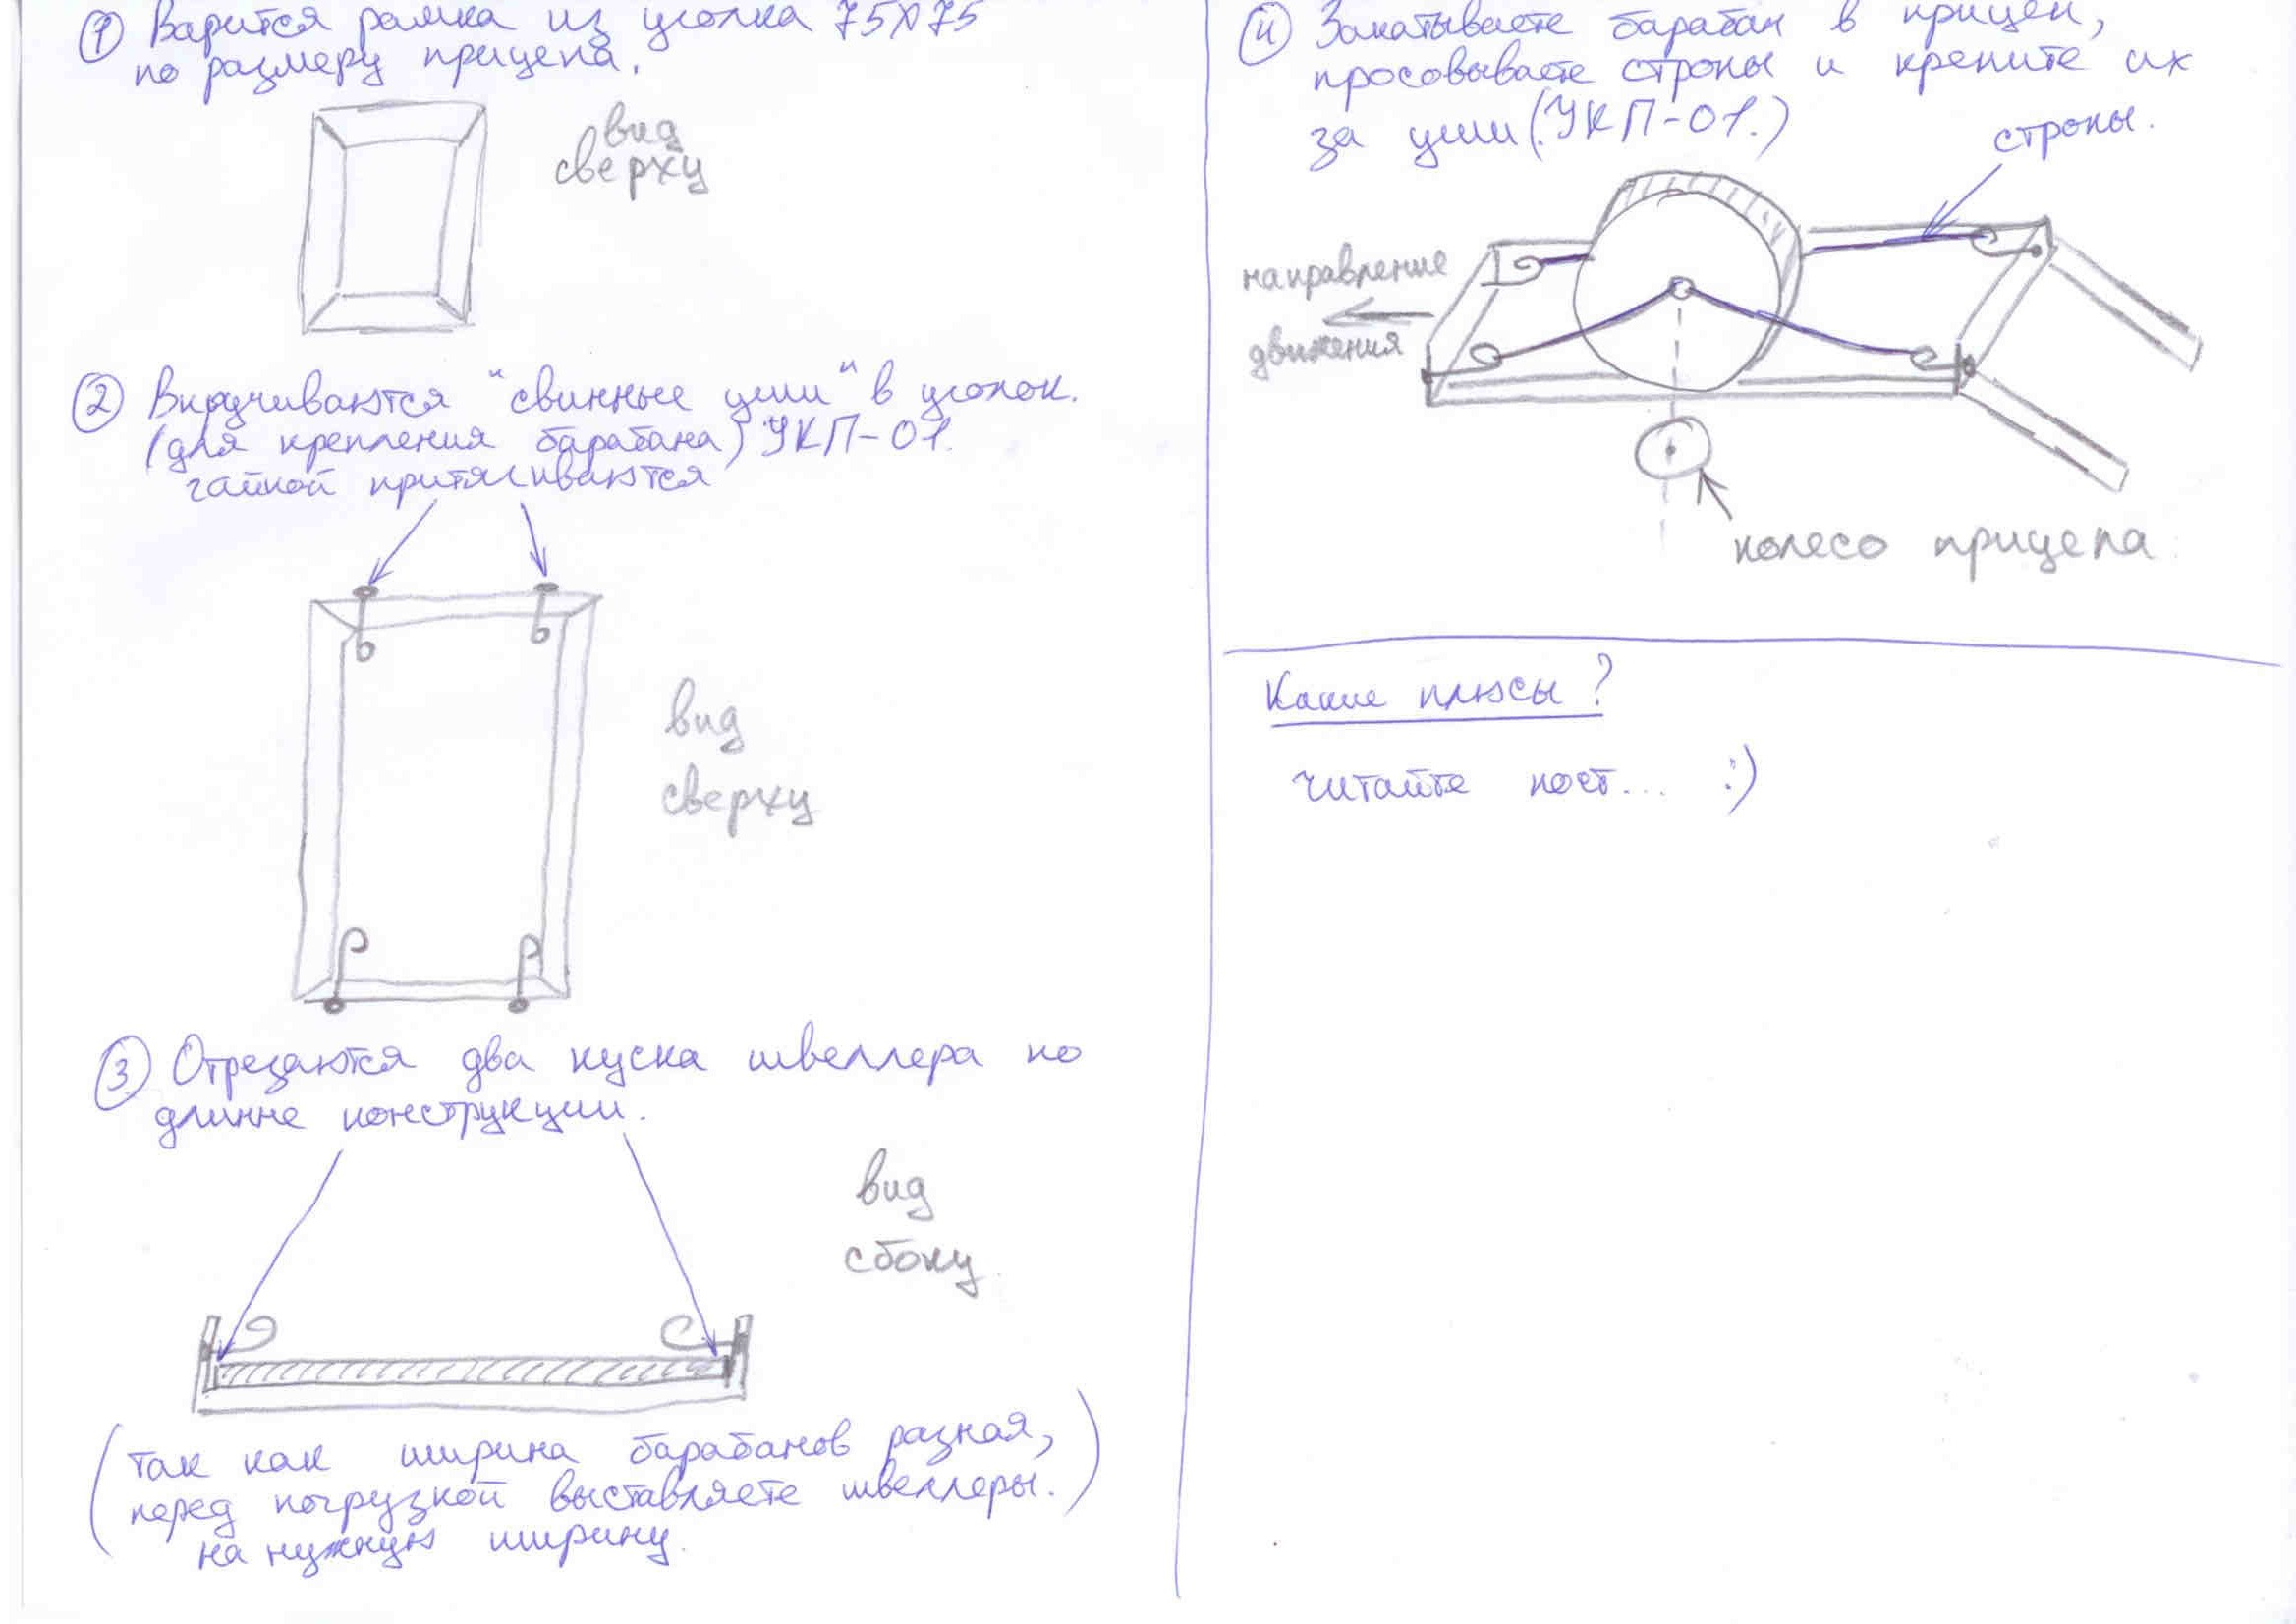 ① Варится рамка из уголка 75х75
по размеру прицепа.
вид
сверху
② Вкручиваются "свинные уши" в уголок.
(для крепления барабана) УКП-01.
гайкой притягиваются
вид
сверху
③ Отрезаются два куска швеллера по
длинне конструкции.
вид
сбоку
(так как ширина барабанов разная,
перед погрузкой выставляете швеллеры.)
на нужную ширину.
④ Закатываете барабан в прицеп,
просовываете стропы и крепите их
за уши (УКП-01.)
стропы.
направление
движения
колесо прицепа
Какие плюсы?
читайте пост... :)